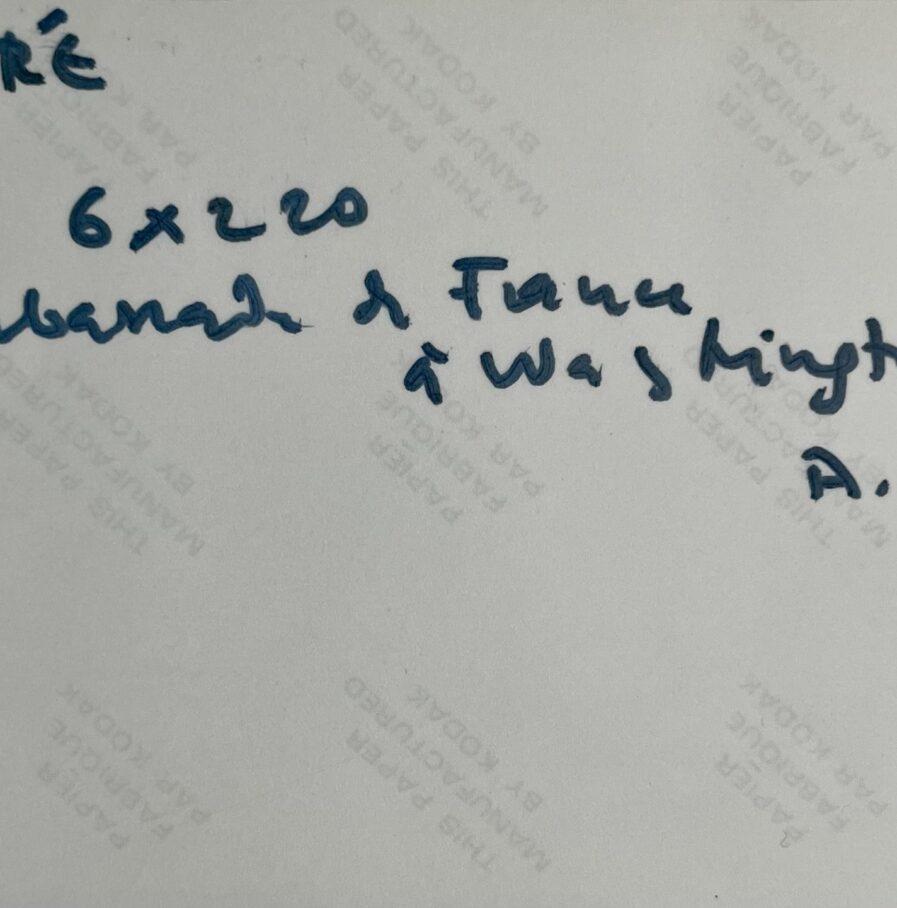 RÉ
6x220
bassade de France
à Washingt
D.
THIS PAPER
MANUFACTURED
BY KODAK
PAPIER
FABRIQUE
PAR KODAK
PAPIER
FABRIQUE
PAR KODAK
THIS PAPER
MANUFACTURED
BY KODAK
PAPIER
FABRIQUE
PAR KODAK
THIS PAPER
MANUFACTURED
BY KODAK
PAPIER
FABRIQUE
PAR KODAK
THIS PAPER
MANUFACTURED
BY KODAK
PAPIER
FABRIQUE
PAR KODAK